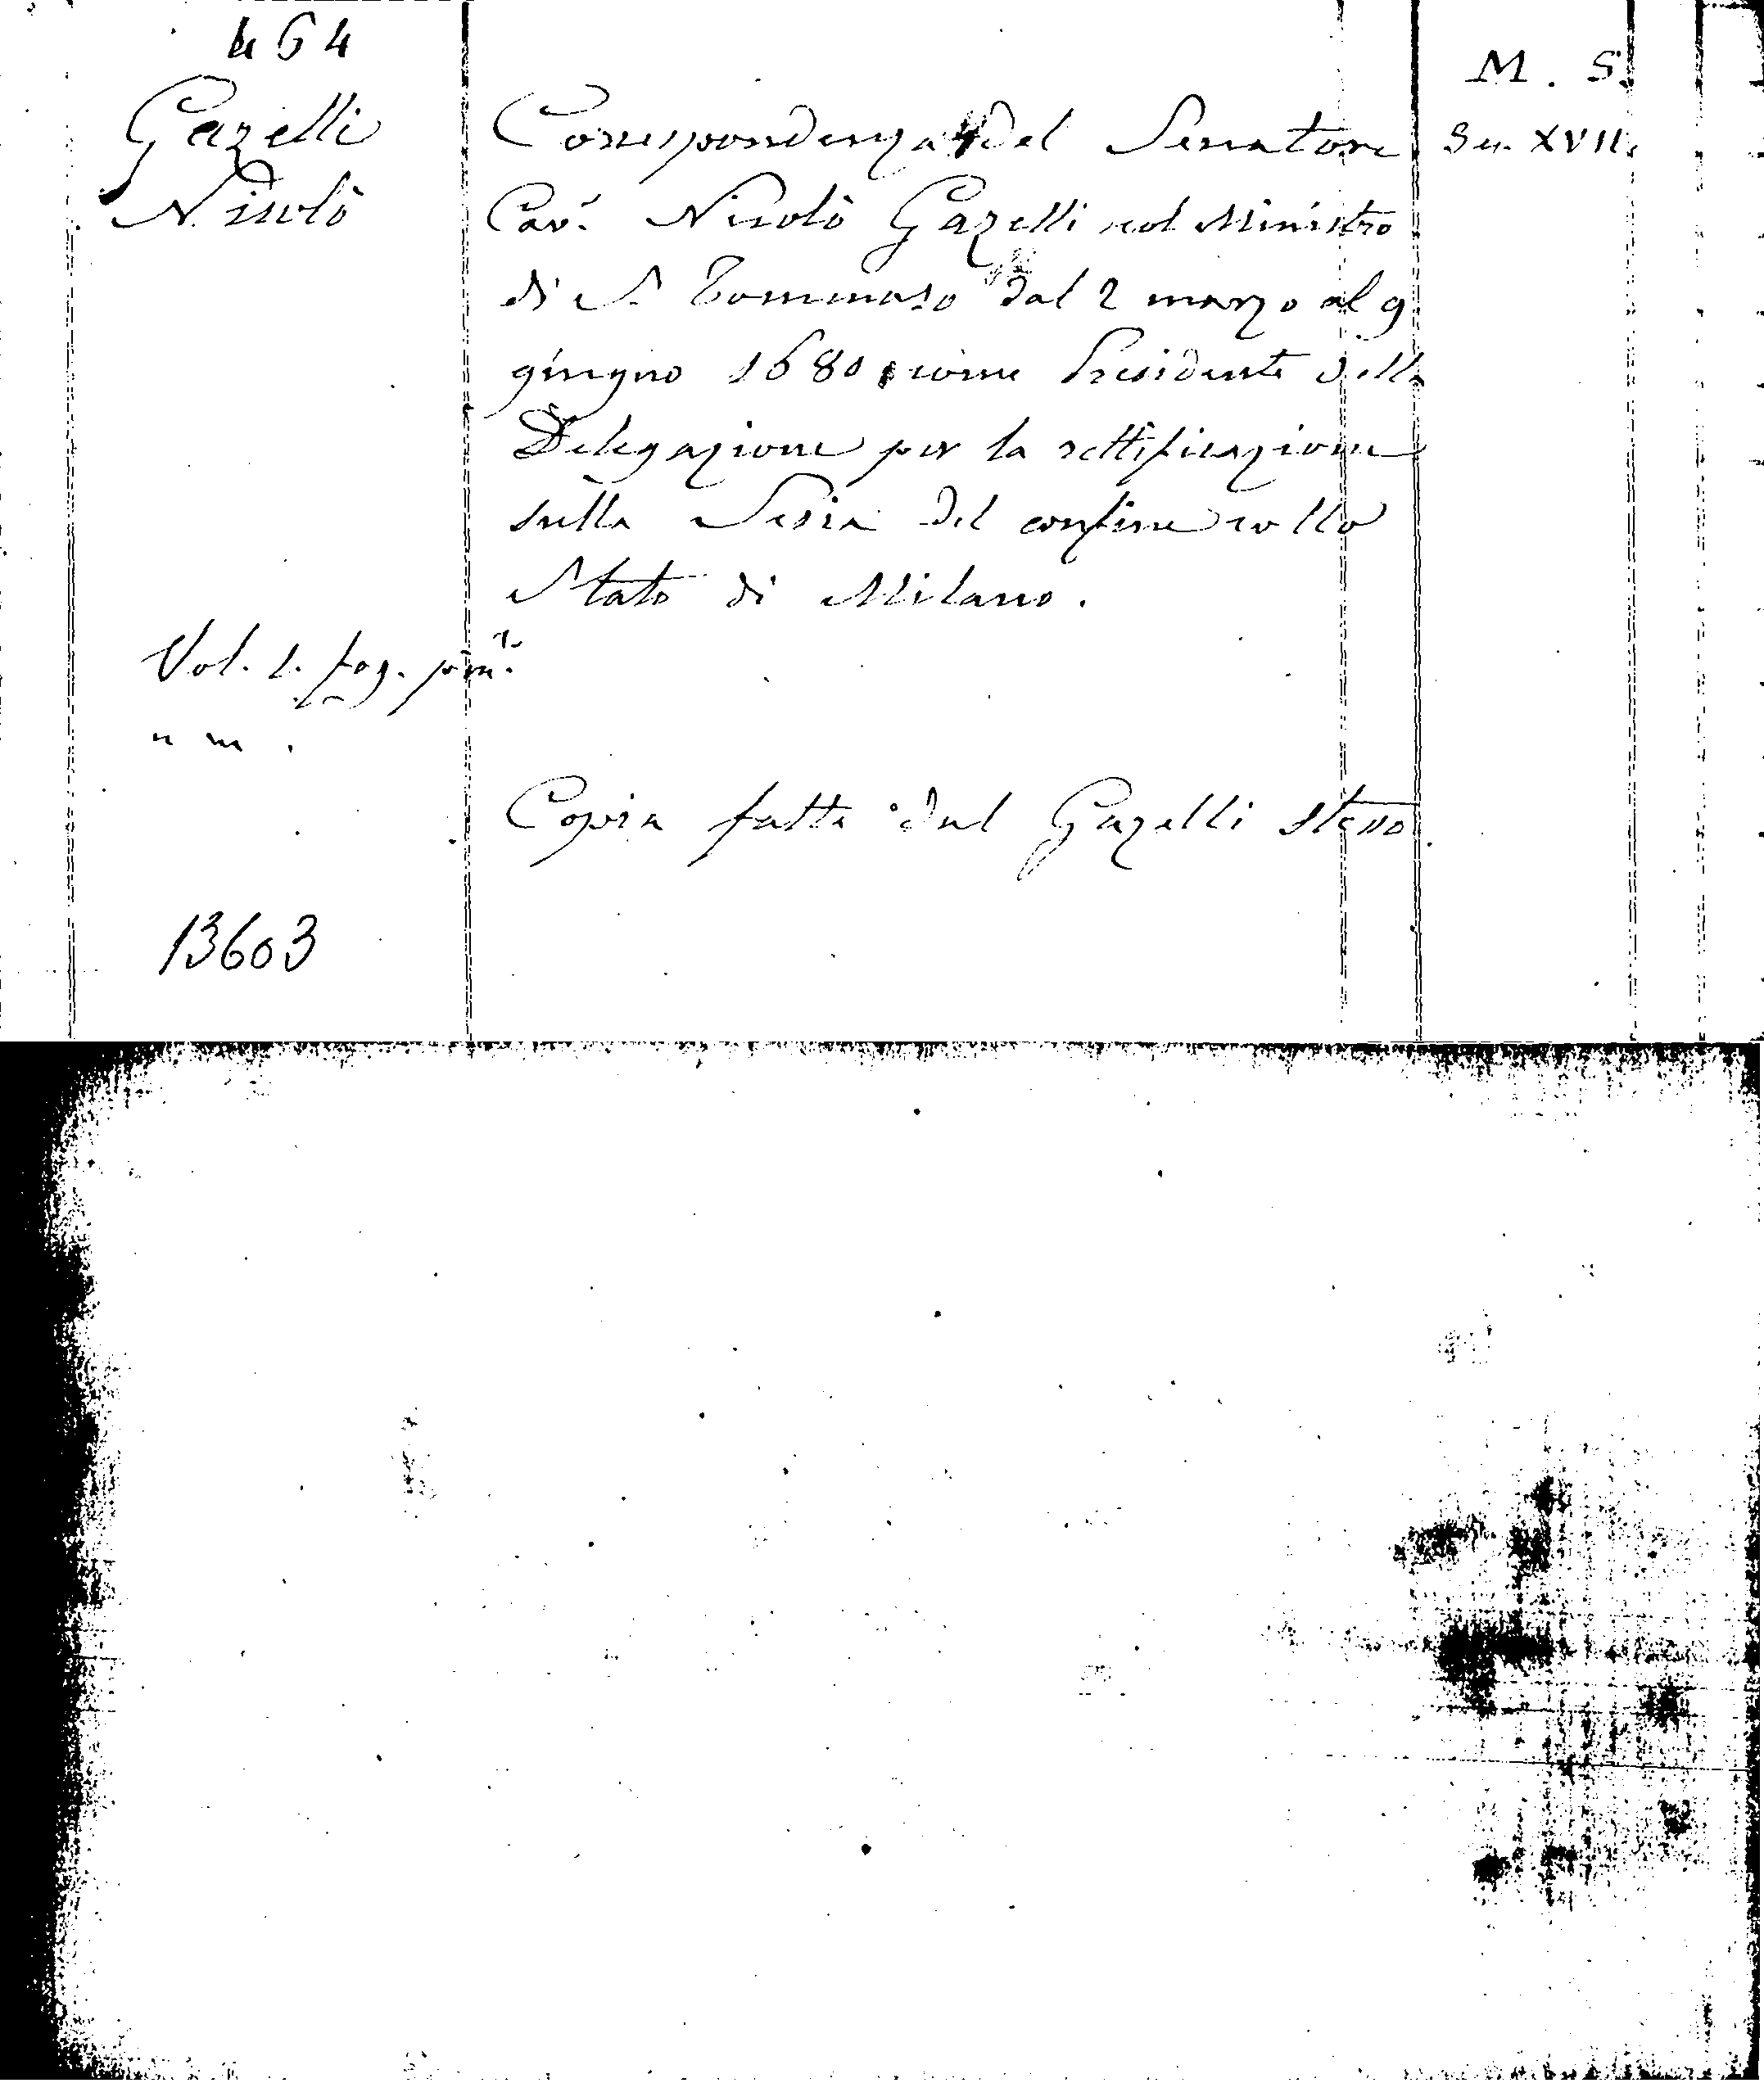 464
M. S.
Gazelli
Nicolò
Correspondenza del Senatore
Sec. XVII.
Cav.e Nicolò Gazelli col Ministro
di S. Tommaso dal 2 marzo al 9
giugno 1680, come Presidente della
Delegazione per la rettificazione
sulla Sesia del confine collo
Stato di Milano.
Vol. 1. fog. pic.
n m.
Copia fatta dal Gazelli stesso
13603